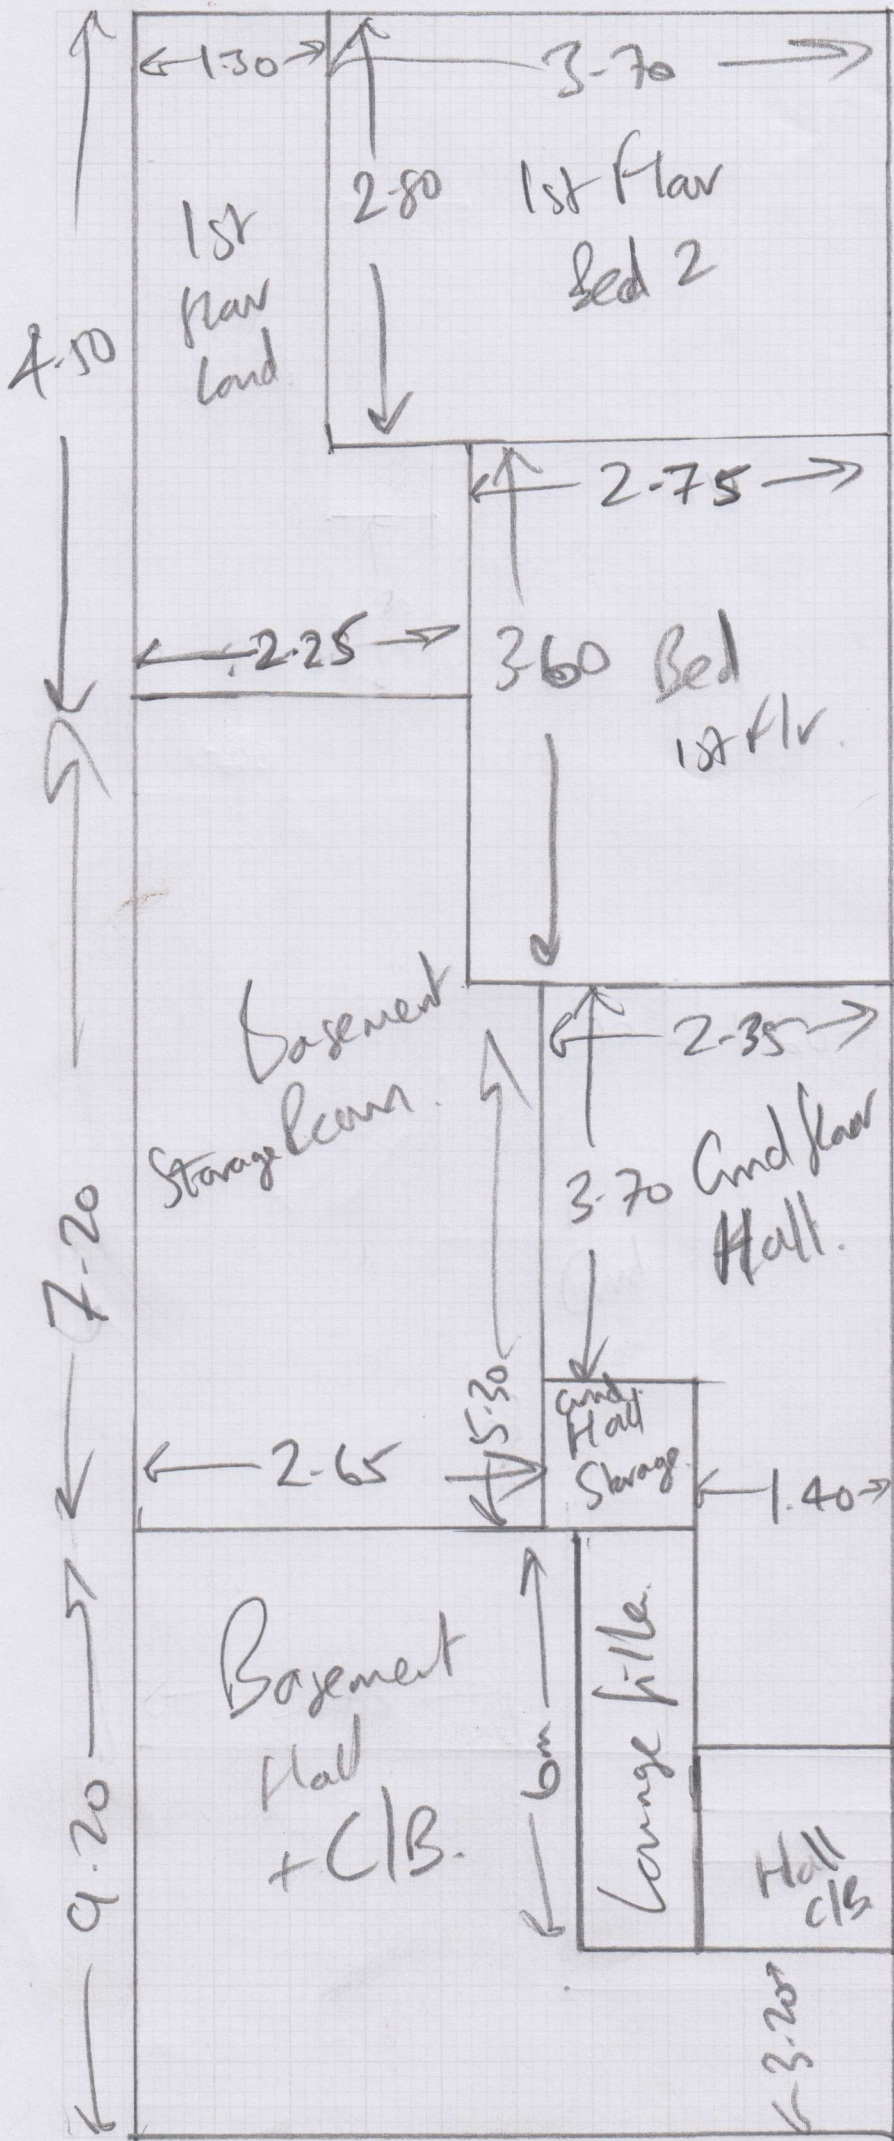 1.30
3.70
2.80
1st Floor
Bed 2
1st
floor
Land
4.50
2.75
2.25
3.60
Bed
1st Flr.
2.35
Basement
Storage Room.
Grnd floor
Hall.
3.70
7.20
5.30
Grnd
Hall
Storage.
2.65
1.40
Basement
Hall
+ C/B.
6m
Lounge fille.
Hall
C/B
9.20
3.20